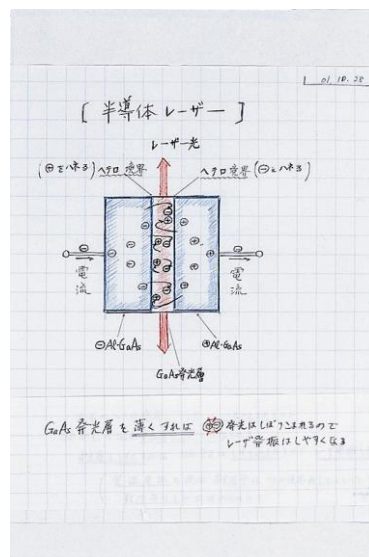 01.10.28
[半導体レーザー]
レーザー光
(⊕をハネる) ヘテロ境界 ヘテロ境界 (⊖をハネる)
⊖ ⊖
電流 電流
⊖Al・GaAs ⊕Al・GaAs
GaAs発光層
GaAs 発光層を薄くすれば ⊕⊖ 発光はしぼりこまれるので
レーザ発振はしやすくなる